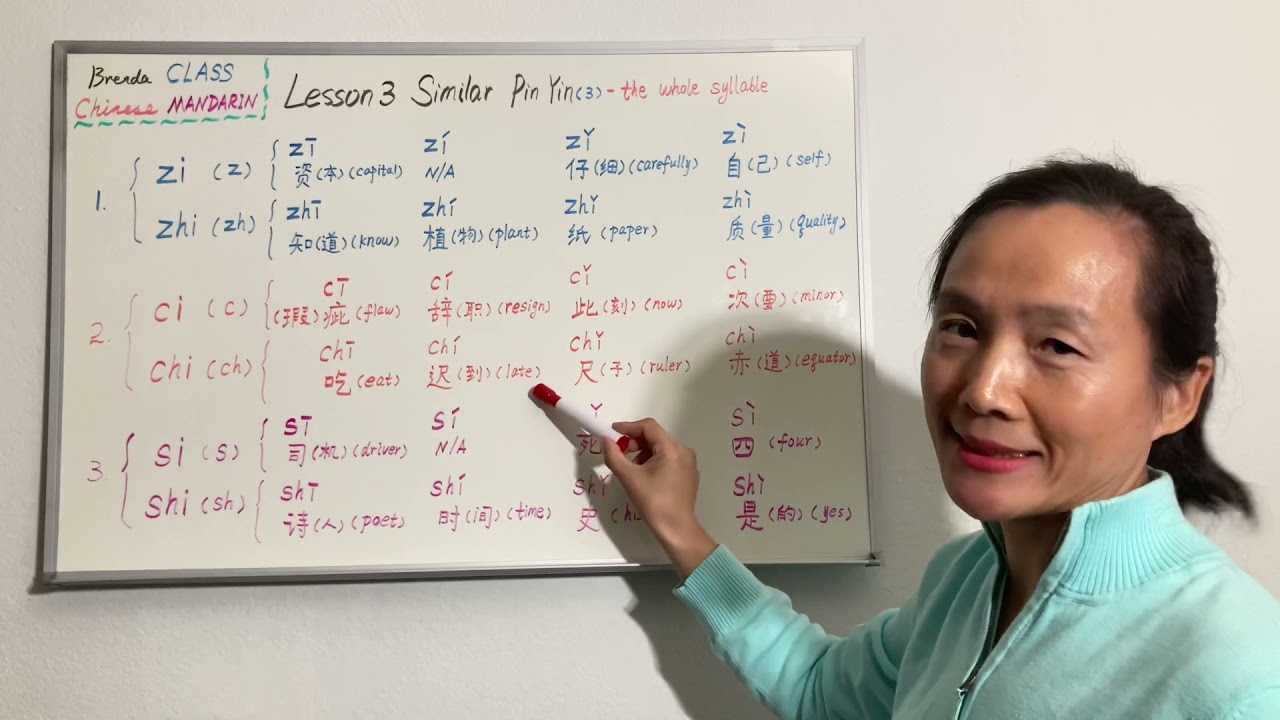 Brenda CLASS
Chinese MANDARIN
Lesson 3 Similar Pin Yin (3) - the whole syllable
1.
zi (z)
zī zí zǐ zì
资(本)(capital) N/A 仔(细)(carefully) 自(己)(self)
zhi (zh)
zhī zhí zhǐ zhì
知(道)(know) 植(物)(plant) 纸(paper) 质(量)(quality)
2.
ci (c)
cī cí cǐ cì
(瑕)疵(flaw) 辞(职)(resign) 此(刻)(now) 次(要)(minor)
chi (ch)
chī chí chǐ chì
吃(eat) 迟(到)(late) 尺(子)(ruler) 赤(道)(equator)
3.
si (s)
sī sí sì
司(机)(driver) N/A 死 四(four)
shi (sh)
shī shí shǐ shì
诗(人)(poet) 时(间)(time) 史 是(的)(yes)